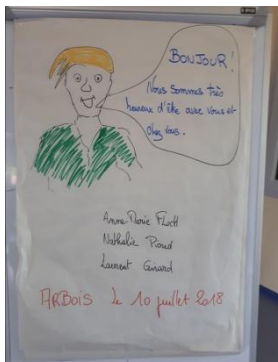 BONJOUR!
Nous sommes très
heureux d'être avec vous et
chez vous.
Anne-Marie
Nathalie
Laurent Girard
ARBOIS le 10 juillet 2018